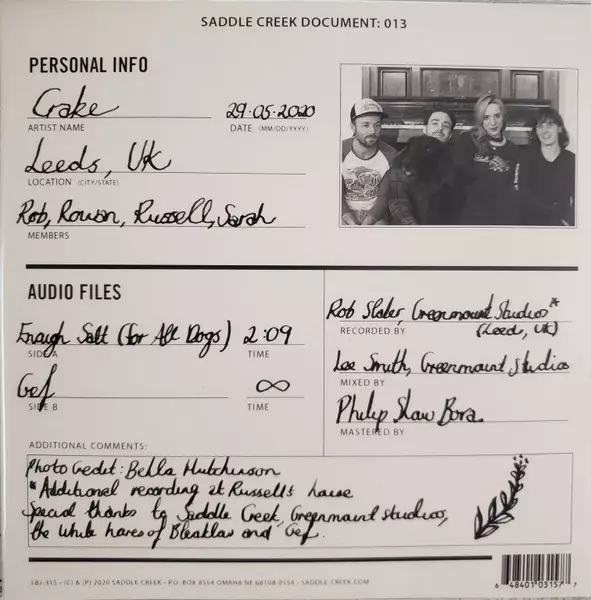 SADDLE CREEK DOCUMENT: 013
PERSONAL INFO
Crake
ARTIST NAME
29·05·2020
DATE (MM/DD/YYYY)
Leeds, UK
LOCATION (CITY/STATE)
Rob, Rowan, Russell, Sarah
MEMBERS
AUDIO FILES
Enough Salt (for All Dogs) 2:09
SIDE A TIME
Gef ∞
SIDE B TIME
Rob Slater, Greenmount Studios*
RECORDED BY (Leeds, UK)
Lee Smith, Greenmount Studios
MIXED BY
Philip Shaw Bova
MASTERED BY
ADDITIONAL COMMENTS:
Photo Credit: Bella Hutchinson
*Additional recording at Russell's house
Special thanks to Saddle Creek, Greenmount Studios,
the white hares of Bleaklow and Gef.
LBJ-315 • (C) & (P) 2020 SADDLE CREEK • P.O. BOX 8554 OMAHA NE 68108-0554 • SADDLE-CREEK.COM
6 48401 03157 7